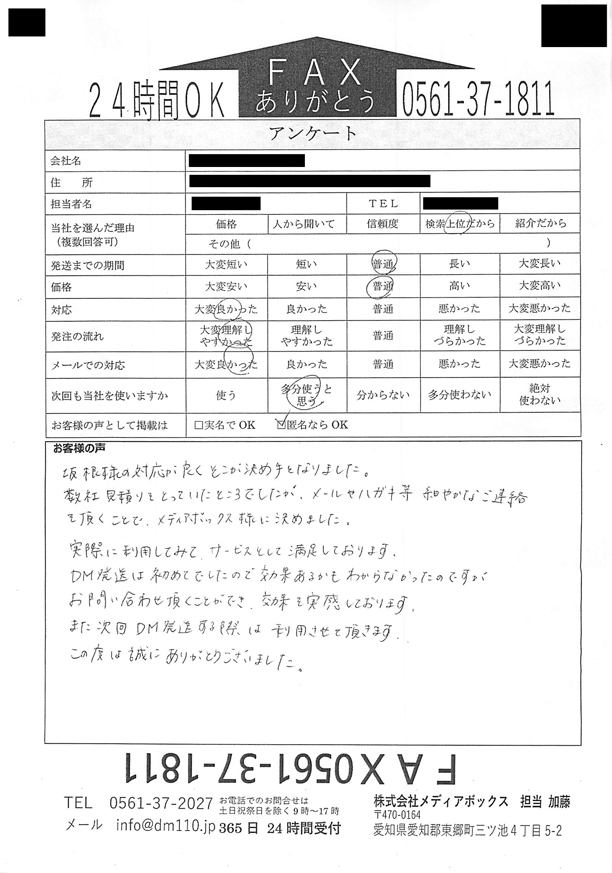 FAX
24時間OK ありがとう 0561-37-1811
アンケート
会社名
住 所
担当者名 TEL
当社を選んだ理由 価格 人から聞いて 信頼度 検索上位だから 紹介だから
（複数回答可） その他（ ）
発送までの期間 大変短い 短い 普通 長い 大変長い
価格 大変安い 安い 普通 高い 大変高い
対応 大変良かった 良かった 普通 悪かった 大変悪かった
発注の流れ 大変理解しやすかった 理解しやすかった 普通 理解しづらかった 大変理解しづらかった
メールでの対応 大変良かった 良かった 普通 悪かった 大変悪かった
次回も当社を使いますか 使う 多分使うと思う 分からない 多分使わない 絶対使わない
お客様の声として掲載は □実名でOK ☑匿名ならOK
お客様の声
坂根様の対応が良くそこが決め手となりました。
数社見積りをとっていたところでしたが、メールやハガキ等 和やかなご連絡
を頂くことで、メディアボックス様に決めました。
実際に利用してみて、サービスとして満足しております。
DM発送は初めてでしたので効果あるかもわからなかったのですが
お問い合わせ頂くことができ、効果を実感しております。
また次回DM発送する際は利用させて頂きます。
この度は誠にありがとうございました。
FAX0561-37-1811
TEL 0561-37-2027 お電話でのお問合せは
土日祝祭日を除く9時～17時
メール info@dm110.jp 365日 24時間受付
株式会社メディアボックス 担当 加藤
〒470-0164
愛知県愛知郡東郷町三ツ池4丁目5-2